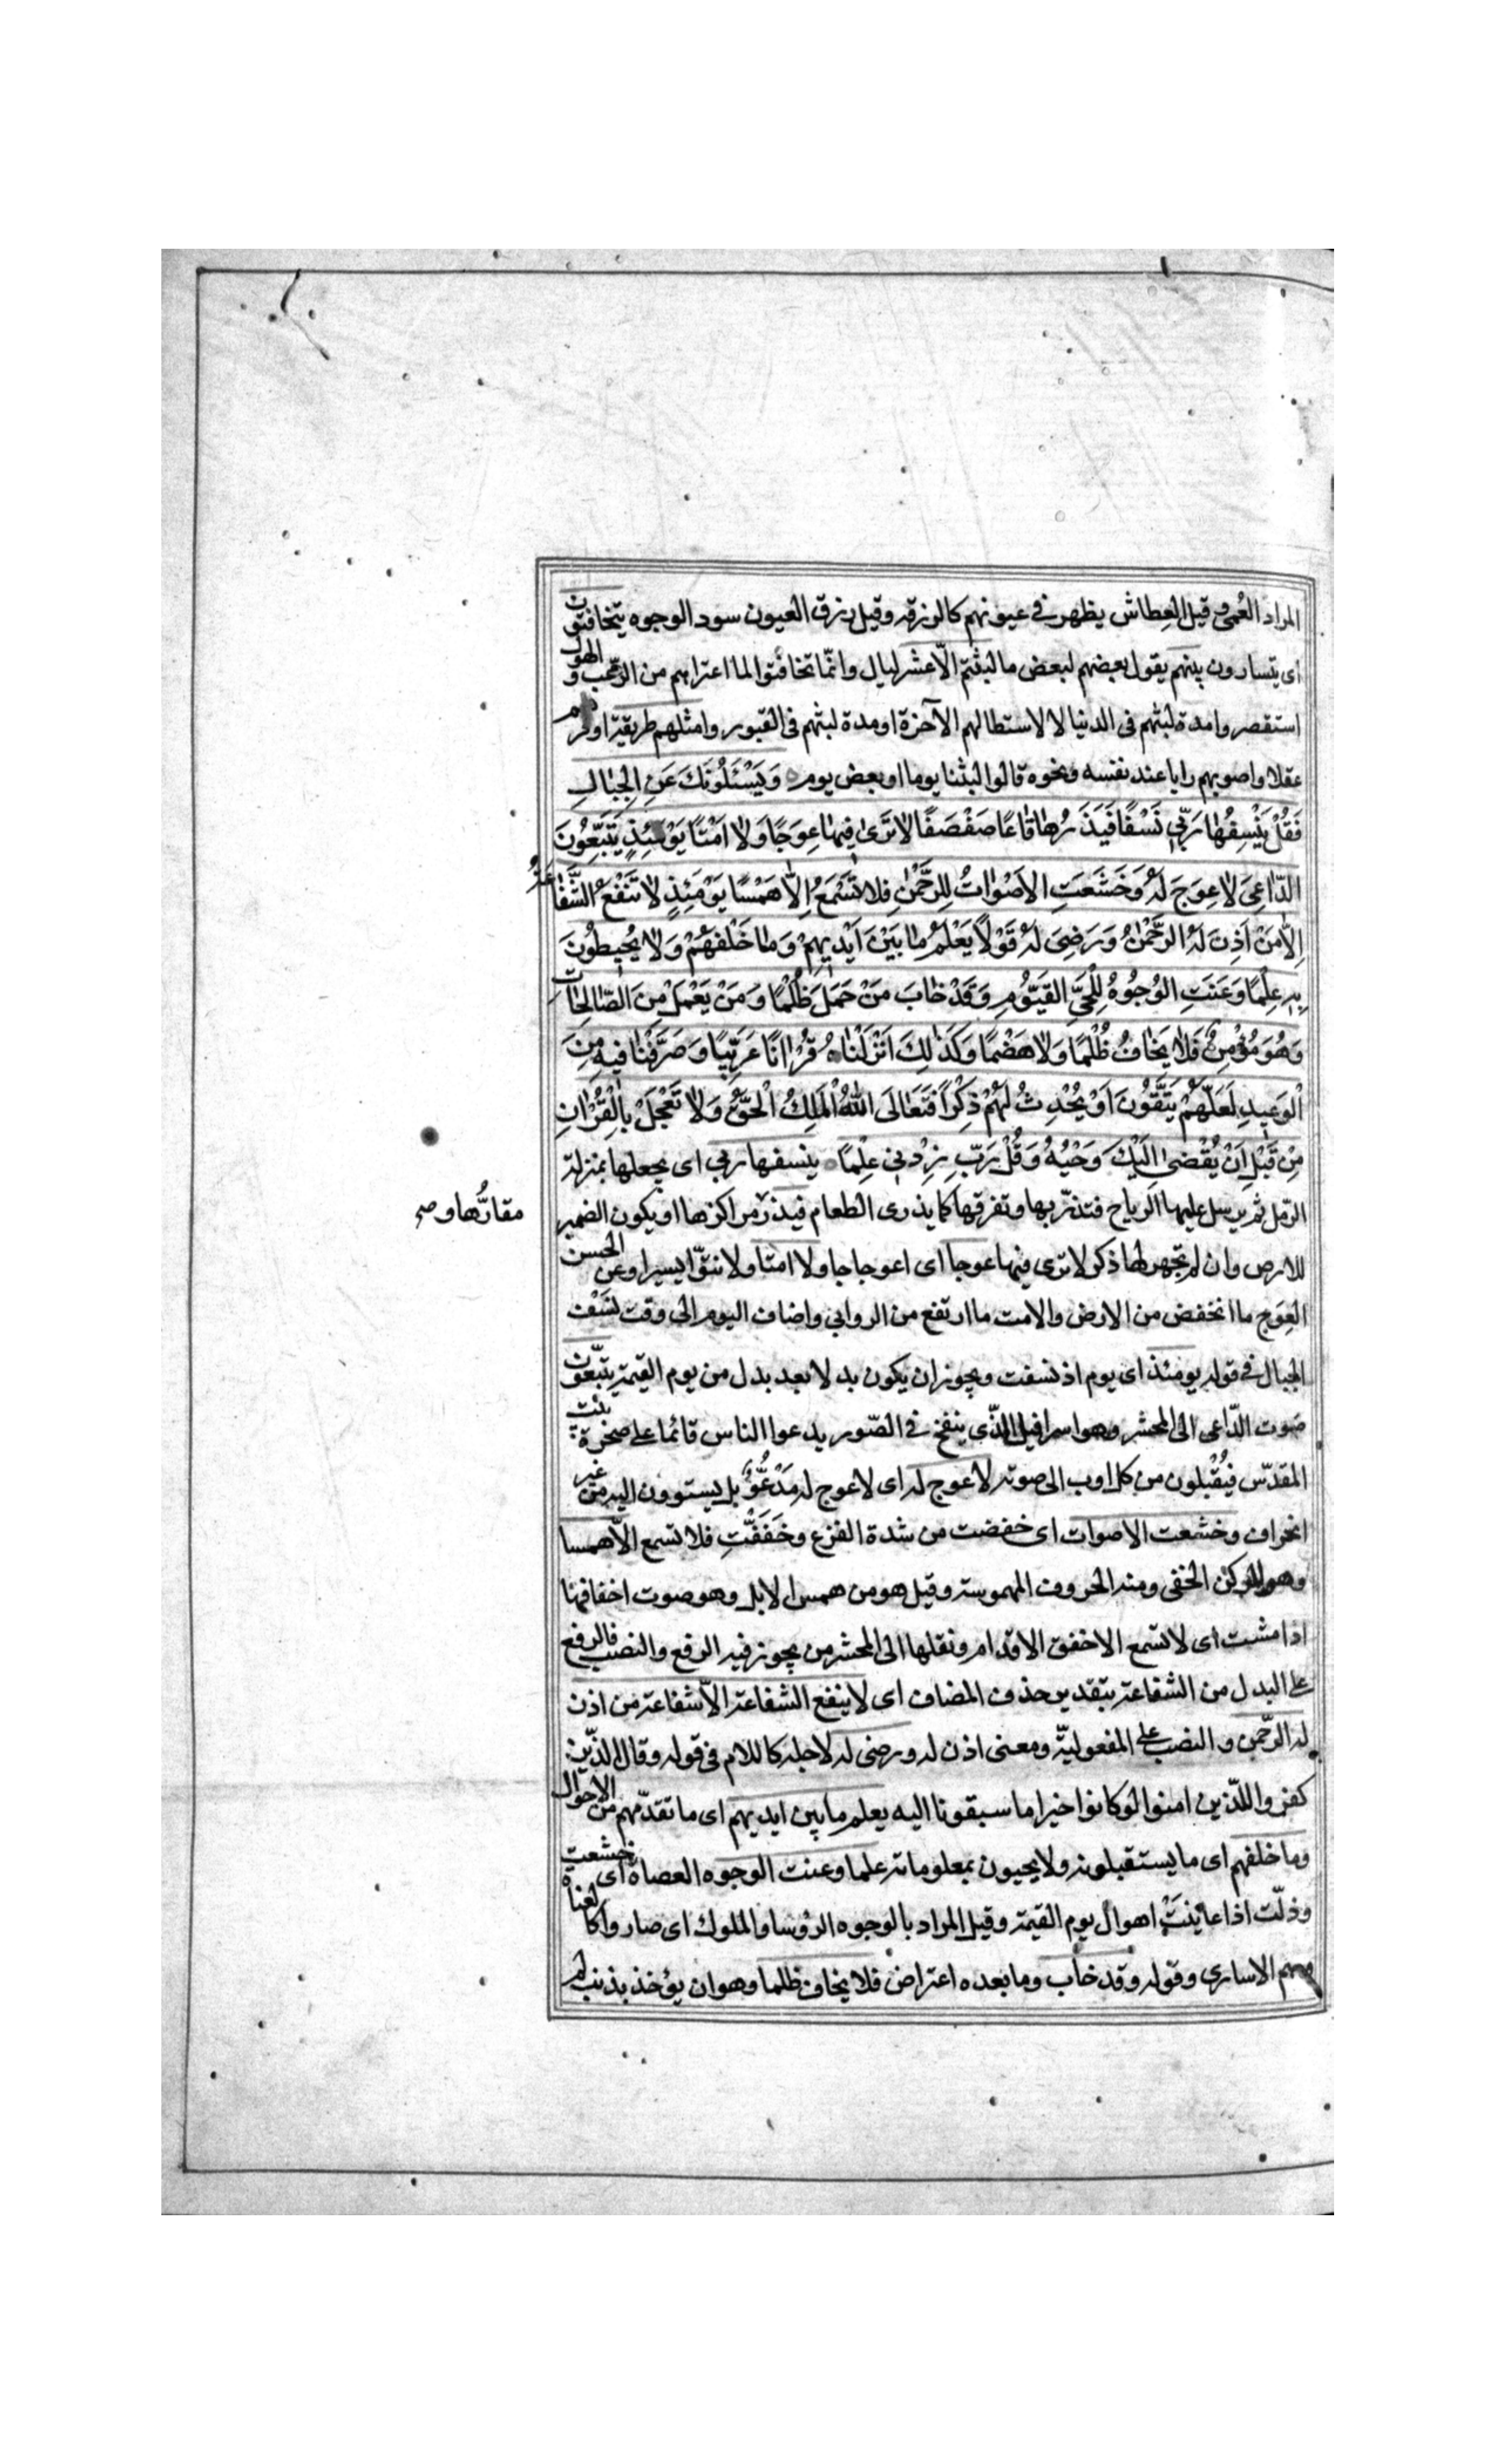 المراد العُمى وقيل العِطاش يظهر في عيونهم كالزرقه وقيل زرق العيون سود الوجوه يتخافتون
اى يتسارون بينهم يقول بعضهم لبعض ما لبثتم الّا عشر ليال وانّما تخافتوا لما اعتراهم من الرّعب والهول
استقصروا مدة لبثهم فى الدنيا لا لاستطالهم الآخرة او مدة لبثهم فى القبور وامثلهم طريقة اوفرهم
عقلا واصوبهم رايا عند نفسه ونحوه قالوا لبثنا يوما او بعض يوم وَيَسْئَلُونَكَ عَنِ الْجِبٰالِ
فَقُلْ يَنْسِفُهٰا رَبّى نَسْفًا فَيَذَرُهٰا قٰاعًا صَفْصَفًا لاٰ تَرىٰ فيهٰا عِوَجًا وَلاٰ اَمْتًا يَوْمَئِذٍ يَتَّبِعُونَ
الدّاعِىَ لاٰ عِوَجَ لَهُ وَخَشَعَتِ الاَصْوٰاتُ لِلرَّحْمٰنِ فَلاٰ تَسْمَعُ اِلّاٰ هَمْسًا يَوْمَئِذٍ لاٰ تَنْفَعُ الشَّفٰاعَةُ
اِلّاٰ مَنْ اَذِنَ لَهُ الرَّحْمٰنُ وَرَضِىَ لَهُ قَوْلاً يَعْلَمُ مٰا بَيْنَ اَيْديهِمْ وَمٰا خَلْفَهُمْ وَلاٰ يُحيطُونَ
بِهِ عِلْمًا وَعَنَتِ الوُجُوهُ لِلْحَىِّ القَيُّومِ وَقَدْ خٰابَ مَنْ حَمَلَ ظُلْمًا وَمَنْ يَعْمَلْ مِنَ الصّٰالِحٰاتِ
وَهُوَ مُؤْمِنٌ فَلاٰ يَخٰافُ ظُلْمًا وَلاٰ هَضْمًا وَكَذٰلِكَ اَنْزَلْنٰاهُ قُرْاٰنًا عَرَبِيًّا وَصَرَّفْنٰا فيهِ مِنَ
الْوَعيدِ لَعَلَّهُمْ يَتَّقُونَ اَوْ يُحْدِثُ لَهُمْ ذِكْراً فَتَعٰالَى اللهُ الْمَلِكُ الْحَقُّ وَلاٰ تَعْجَلْ بِالْقُرْاٰنِ
مِنْ قَبْلِ اَنْ يُقْضىٰ اِلَيْكَ وَحْيُهُ وَقُلْ رَبِّ زِدْنى عِلْمًا ينسفها ربي اى يجعلها بمنزلة
الرّمل ثم يرسل عليها الرياح فتذرّيها وتفرقها كما يذرى الطعام فيذر مراكزها او يكون الضمير
مقارُّها و صح
للارض وان لم تجهر لها ذكر لا ترى فيها عوجا اى اعوجاجا ولا امتا ولا نتوّا يسيرا وعن الحسن
العِوَج ما انخفض من الارض والامت ما ارتفع من الروابي واضاف اليوم الى وقت نَسْف
الجبال في قوله يومئذ اى يوم اذ نسفت ويجوز ان يكون بدلا بعد بدل من يوم القيمة يتبّعون
صوت الدّاعى الى المحشر وهو اسرافيل الذّى ينفخ في الصّور يدعوا الناس قائما على صخرة بيت
المقدّس فيُقْبلون من كل اوب الى صوته لا عوج له اى لا عوج له مَدْعُوٌّ بل يستوون اليه من غير
انحراف وخشعت الاصوات اى خفضت من شدة الفزع وخَفَتَتْ فلا تسمع الاّ همسا
وهو الركز الخفى ومنه الحروف المهموسة وقيل هو من همس الابل وهو صوت اخفافها
اذا مشت اى لا تسمع الا خفق الاقدام ونقلها الى المحشر من يجوز فيه الرفع والنصب فالرفع
على البدل من الشفاعة بتقدير حذف المضاف اى لا ينفع الشفاعة الاّ شفاعة من اذن
له الرّحمن والنصب على المفعوليّة ومعنى اذن له ورضى له لاجله كاللام فى قوله وقال الذّين
كفروا للذّين امنوا لو كانوا خيرا ما سبقونا اليه يعلم ما بين ايديهم اى ما تقدّمهم من الاحوال
وما خلفهم اى ما يستقبلونه ولا يحيون بمعلوماته علما وعنت الوجوه العصاة اى خشعت
وذلّت اذا عايَنَتْ اهوال يوم القيمة وقيل المراد بالوجوه الرؤسا والملوك اى صاروا كالعناة
وهم الاسارى وقوله وقد خاب وما بعده اعتراض فلا يخاف ظلما وهو ان يؤخذ بذنب لم